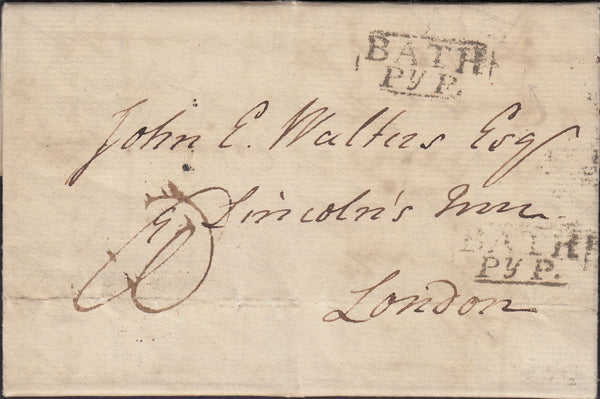 BATH
Py P.
John E. Walters Esq
9. Lincoln's Inn
BATH
Py P.
London